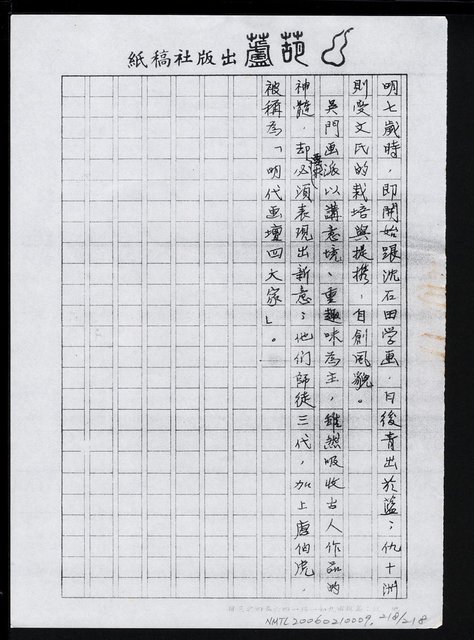 葫蘆出版社稿紙
明七歲時，即開始跟沈石田学画，日後青出於藍；仇十洲
則受文氏的栽培與提攜，自創風貌。
吳門画派以講意境、重趣味為主，雖然吸收古人作品的
神髓，却必須表現出新意；他们師徒三代，加上唐伯虎，
被稱為「明代画壇四大家」。
NMTL20060210009, 218/218